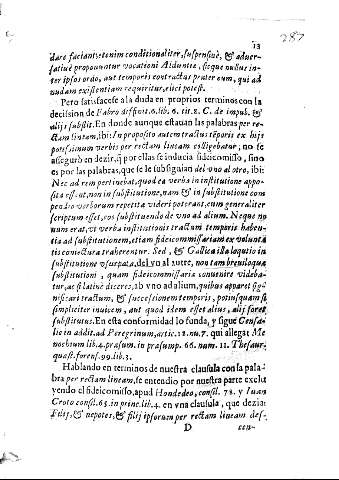 13
287
dare faciant: etenim conditionaliter, suspensivè, & adver-
sativè propounutur vocationi Aiduntę, sicque nullus in-
ter ipsos ordo, aut temporis contractus præter eum, qui ad
nudam existentiam requiritur, elici potest.
Pero satisfacese a la duda en proprios terminos con la
decission de Fabro diffinit. 6. lib. 6. tit. 8. C. de impub. &
alijs substit. En donde aunque estauan las palabras per re-
ctam lineam, ibi: In proposito autem tractus tēporis ex hijs
potissimum verbis per rectam lineam colligebatur; no se
assegurò en dezir, q̃ por ellas se inducia fideicomisso, sino
es por las palabras, que se le subsiguian del vno al otro, ibi:
Nec ad rem pertinebat, quod ea verba in institutione appo-
sita essent, non in substitutione, nam & in substitutione com
pendio verborum repetita videri poterant, cum generaliter
scriptum esset, eos substituendo de vno ad alium. Neque no
uum erat, vt verba institutionis tractum temporis haben-
tia ad substitutionem, etiam fideicommissariam ex volunta
tis coniectura traherentur. Sed, & Gallica illa loquutio in
substitutione vsurpata, del vn a l autre, non tam breuiloquæ
substitutioni, quam fideicommissaria conuenire videba-
tur, ac si latinè diceres, ab vno ad alium, quibus apparet sig-
nificari tractum, & successionem temporis, potiusquam si
simpliciter inuicem, aut quod idem esset alius, alij foret
substitutus. En esta conformidad lo funda, y sigue
in addit. ad Peregrinum, artic. 12. nu. 7. qui allegat Me
nochium lib. 4. præsum. in præsump. 66. num. 11. Thesaur.
quæst. forens. 99. lib. 3.
Hablando en terminos de nuestra clausula con la pala-
bra per rectam lineam, se entendio por nuestra parte exclu
yendo el fideicomisso, apud Hondedeo, consil. 78. y Iuan
Croto consil. 63. in princ. lib. 4. en vna clausula, que dezia:
Filij, & nepotes, & filij ipsorum per rectam lineam des-
D
cen-